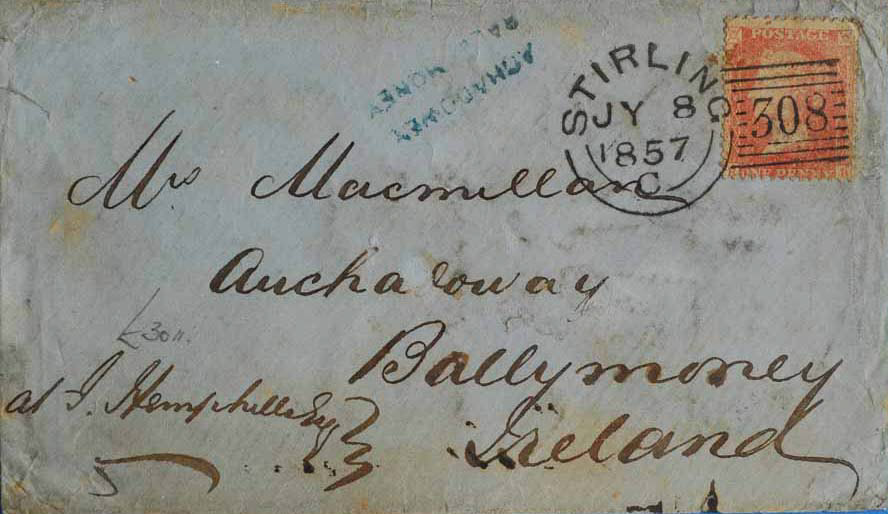 AGHADOWEY
MONEY
STIRLING
JY 8
1857
C
POSTAGE
308
ONE PENNY
Mrs Macmillan
Ballymoney
Ireland
at J. Hemphills Esq